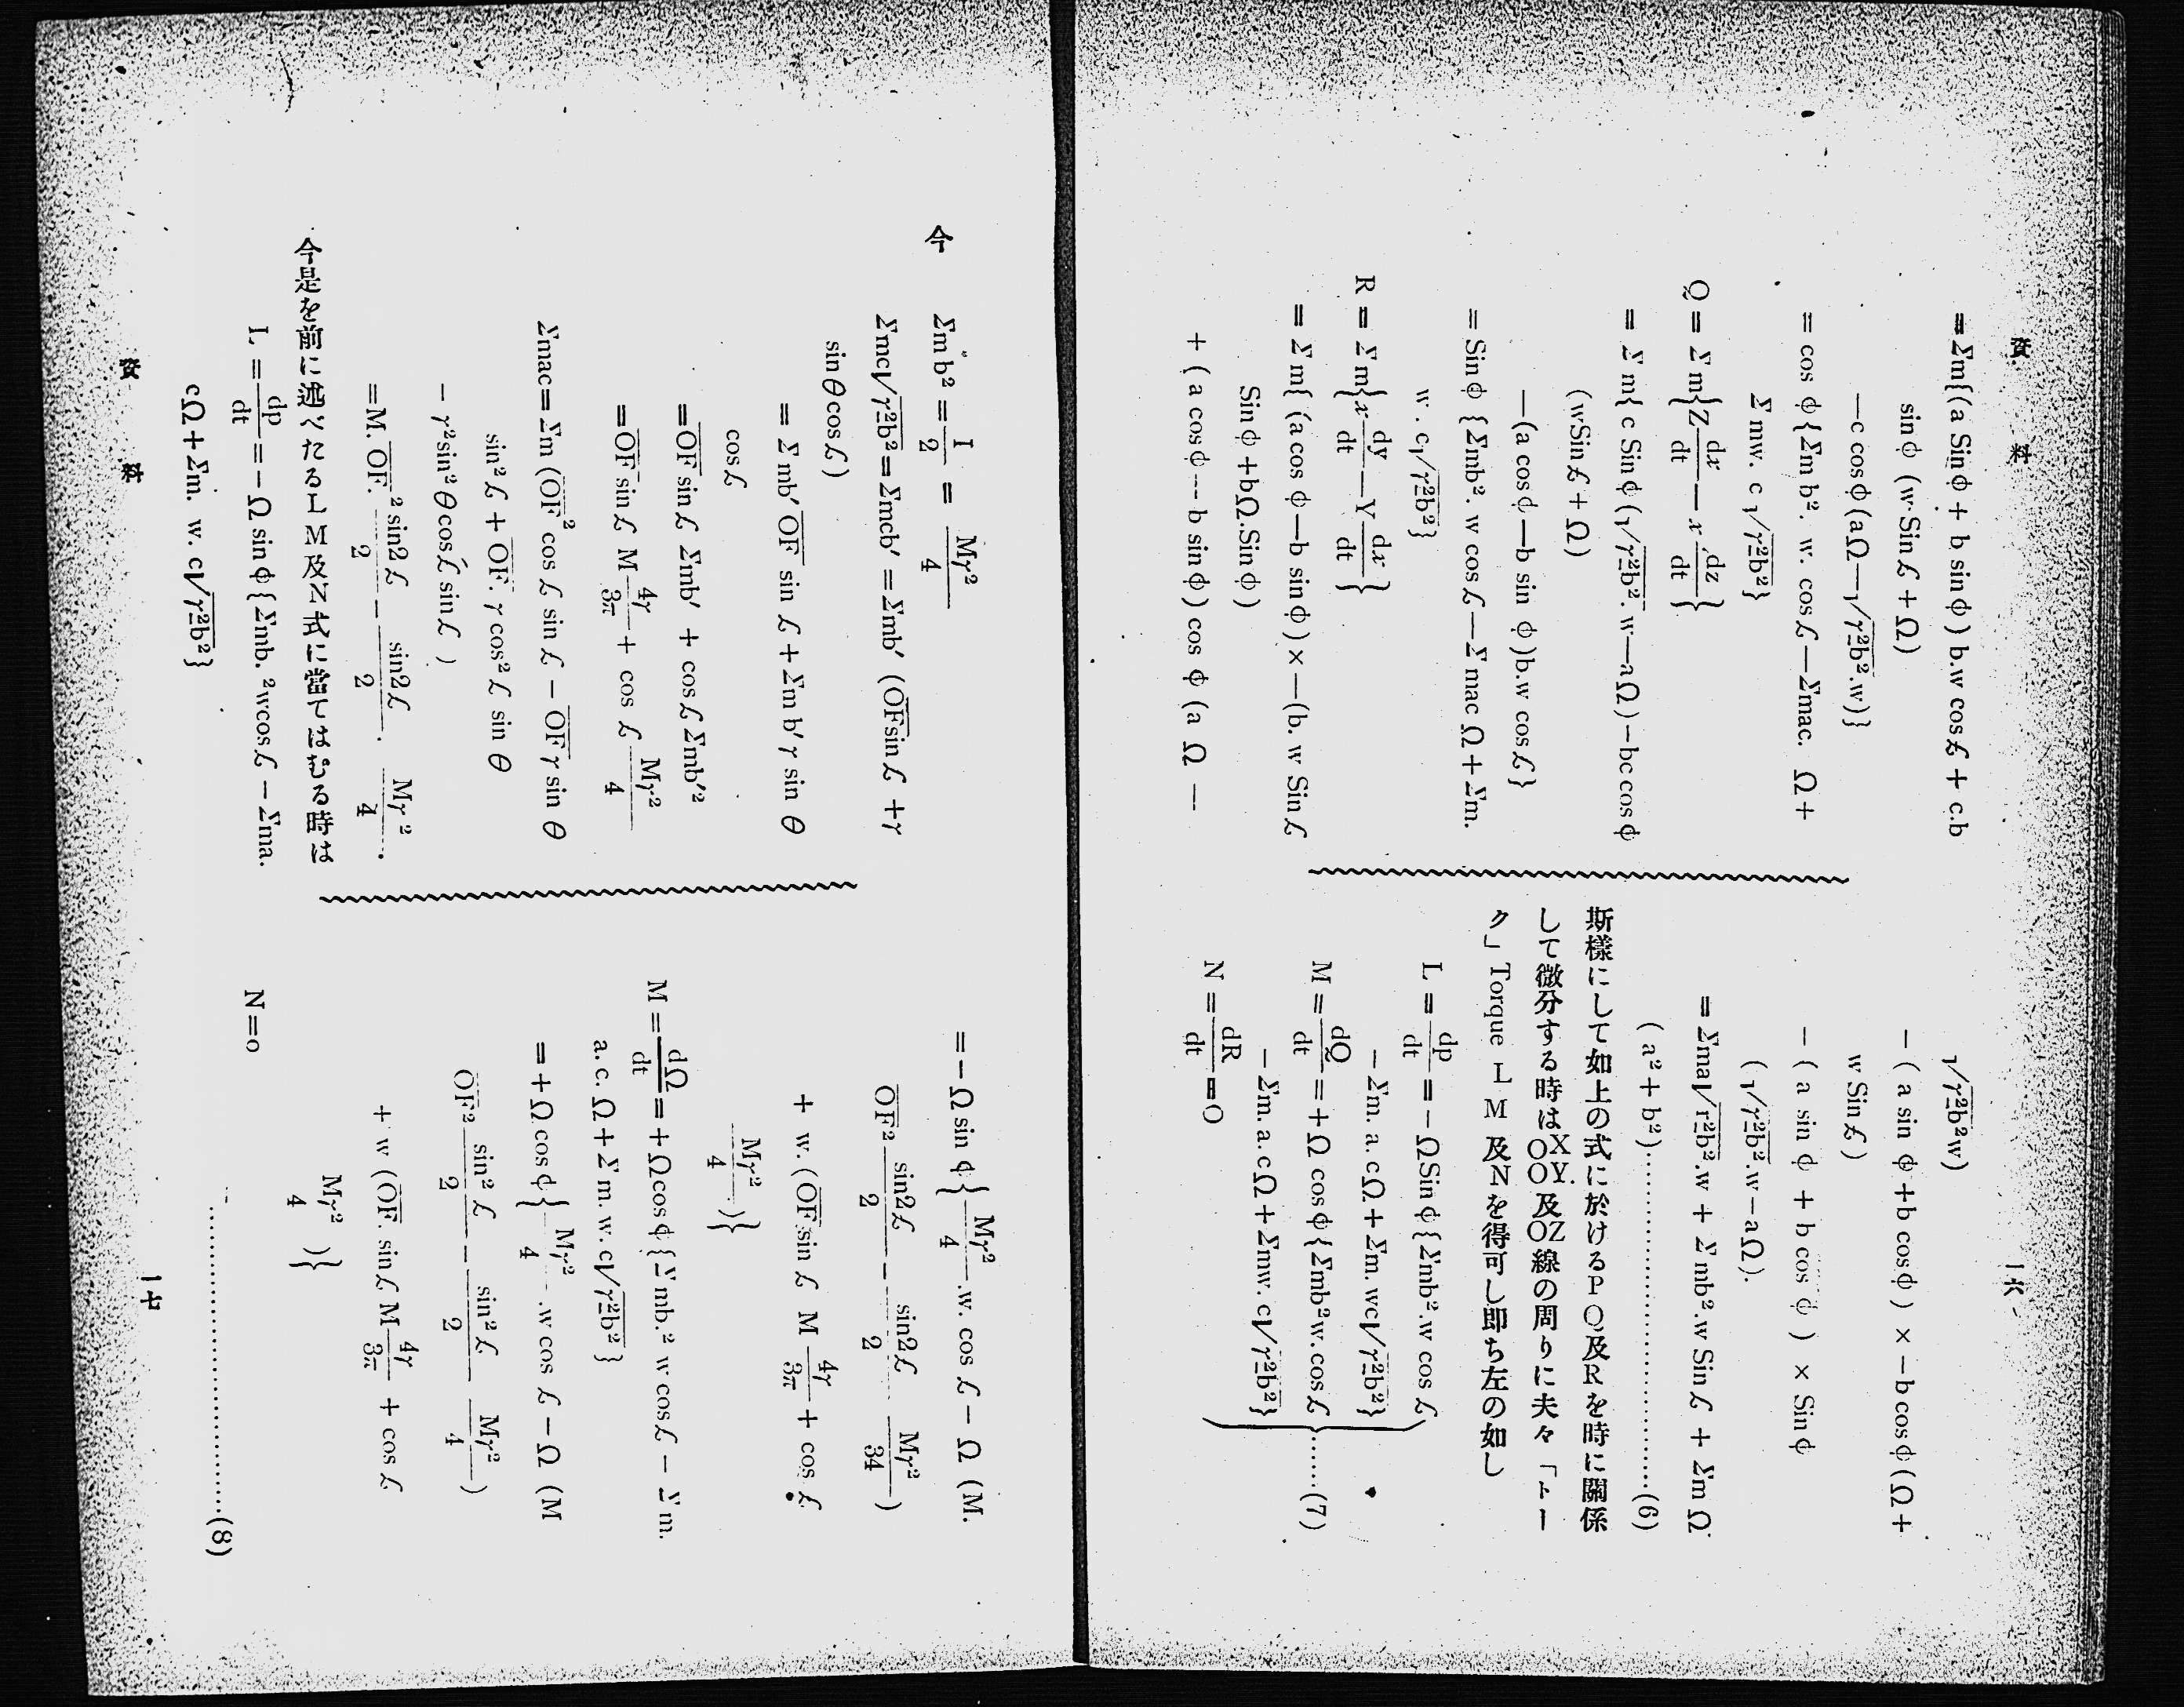 資料
一六
=Σm{(a Sinϕ + b sinϕ) b.w cos ℒ + c.b
sinϕ (w·Sin ℒ + Ω)
—c cosϕ (aΩ—√γ²-b².w)}
= cos ϕ {Σm b². w. cos ℒ — Σmac. Ω +
Σ mw. c √γ²-b²}
Q = Σ m{Z dx/dt — x dz/dt}
= Σ m{c Sin ϕ (√γ²-b². w—aΩ) – bc cos ϕ
(wSin ℒ + Ω)
—(a cos ϕ—b sin ϕ)b.w cos ℒ}
= Sin ϕ {Σmb². w cos ℒ—Σ mac Ω + Σm.
w . c √γ²-b²}
R = Σ m{x dy/dt — Y dx/dt}
= Σ m{(a cos ϕ—b sin ϕ) × —(b. w Sin ℒ
Sin ϕ + bΩ.Sin ϕ)
+ (a cos ϕ — b sin ϕ) cos ϕ (a Ω —
√γ²-b² w)
– (a sin ϕ + b cos ϕ) × – b cos ϕ (Ω +
w Sin ℒ)
– (a sin ϕ + b cos ϕ) × Sin ϕ
(√γ²-b².w – aΩ).
= Σma√r²-b².w + Σ mb².w Sin ℒ + Σm Ω
(a² + b²)……(6)
斯樣にして如上の式に於けるP Q及Rを時に關係
して微分する時はOX OY.及OZ線の周りに夫々「トー
ク」Torque L M 及Nを得可し卽ち左の如し
L = dp/dt = – ΩSin ϕ {Σmb².w cos ℒ
– Σm. a. cΩ + Σm. wc√γ²-b²}
M = dQ/dt = + Ω cosϕ {Σmb²w. cos ℒ
– Σm. a. cΩ + Σmw. c√γ²-b²}
N = dR/dt = O
……(7)
今 Σm b² = I/2 = Mγ²/4
Σmc√γ²-b² = Σmcb′ = Σmb′ (OF sin ℒ + γ
sin θ cos ℒ)
= Σ mb′ OF sin ℒ + Σm b′ γ sin θ
cos ℒ
= OF sin ℒ Σmb′ + cos ℒ Σmb′²
= OF sin ℒ M 4γ/3π + cos ℒ Mγ²/4
Σmac = Σm (OF² cos ℒ sin ℒ – OF γ sin θ
sin² ℒ + OF. γ cos² ℒ sin θ
– γ² sin² θ cos ℒ sin ℒ)
= M. OF.² sin2ℒ/2 – sin2ℒ/2 . Mγ²/4.
今是を前に述べたるL M及N式に當てはむる時は
L = dp/dt = – Ω sin ϕ {Σmb.² wcos ℒ – Σma.
cΩ + Σm. w. c√γ²-b²}
= – Ω sin ϕ {Mγ²/4 .w. cos ℒ – Ω (M.
OF² sin2ℒ/2 – sin2ℒ/2 Mγ²/34)
+ w. (OF. sin ℒ M 4γ/3π + cos ℒ
Mγ²/4)}
M = dΩ/dt = + Ω cos ϕ {Σ mb.² w cos ℒ – Σ m.
a. c. Ω + Σ m. w. c√γ²-b²}
= + Ω cos ϕ {Mγ²/4 .w cos ℒ – Ω (M
OF² sin² ℒ/2 – sin² ℒ/2 Mγ²/4)
+ w (OF. sin ℒ M 4γ/3π + cos ℒ
Mγ²/4)}
N = o
……(8)
資料
一七